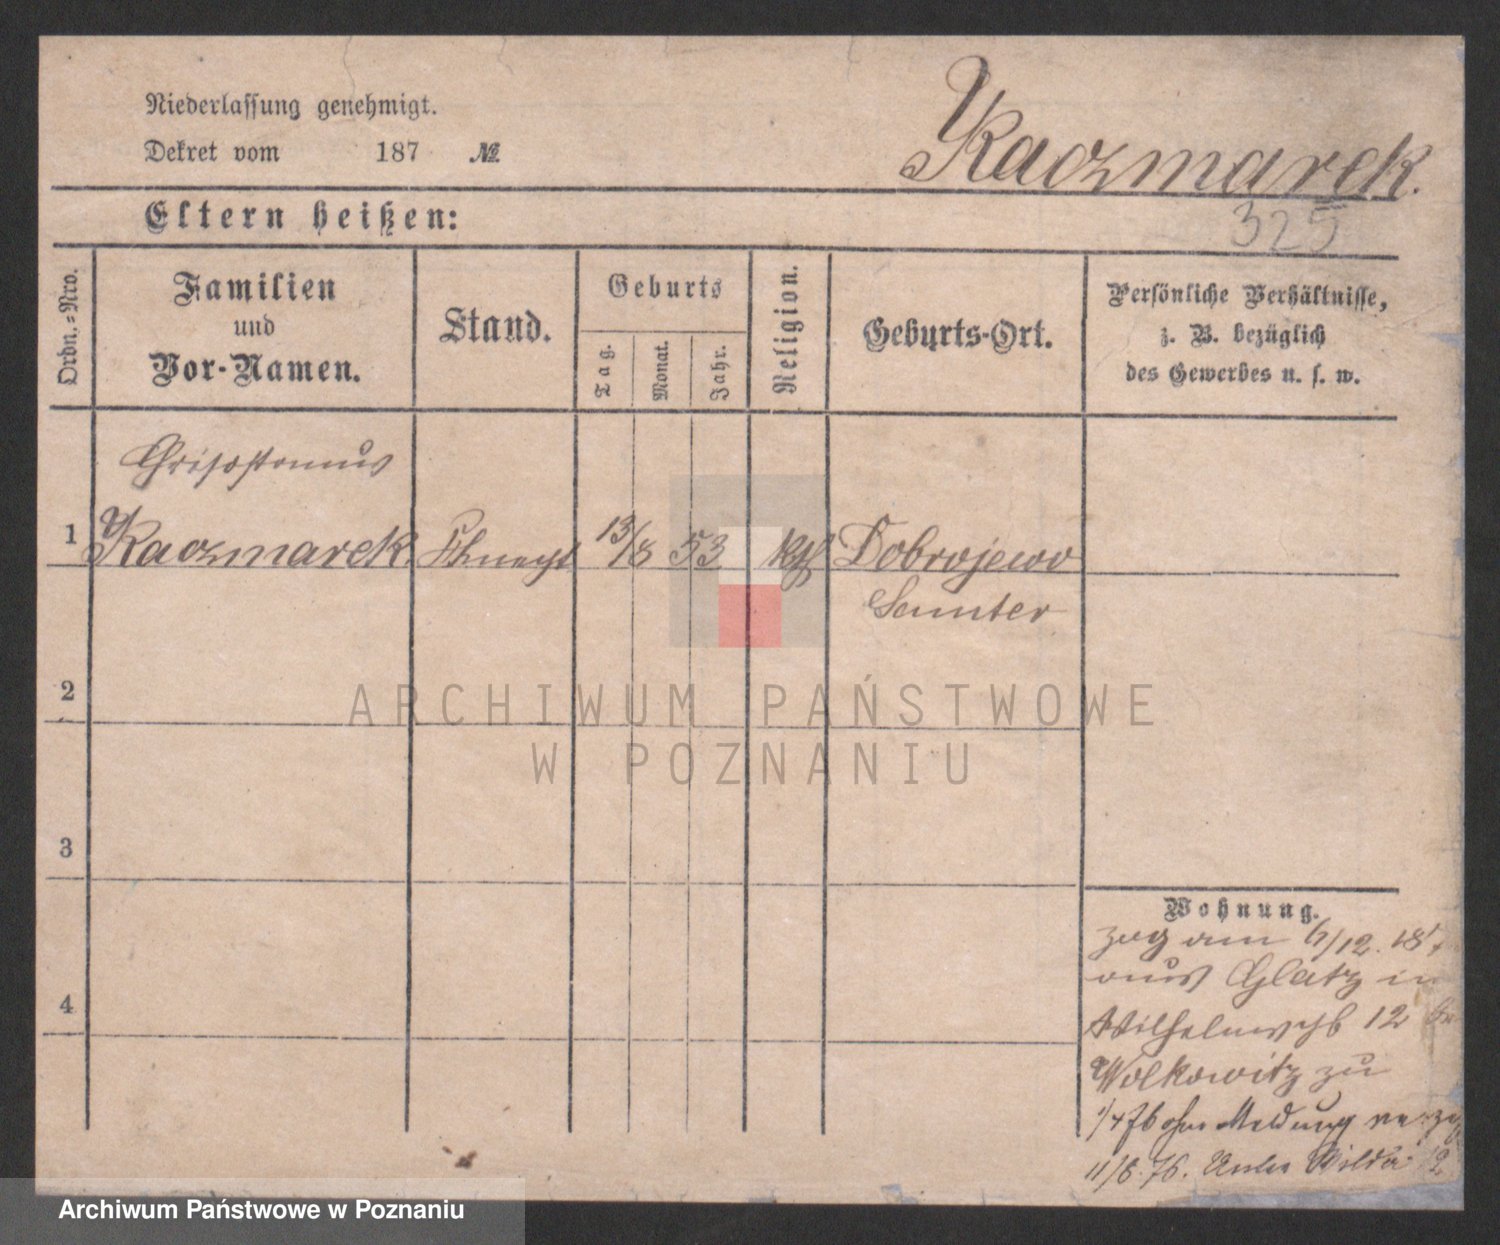 Niederlassung genehmigt.
Dekret vom 187 №
Kaczmarek.
325
Eltern heißen:
Ordn.-Nro.
Familien
und
Vor-Namen.
Stand.
Geburts
Tag.
Monat.
Jahr.
Religion.
Geburts-Ort.
Persönliche Verhältnisse,
z. B. bezüglich
des Gewerbes u. s. w.
Chrisostomus
1 Kaczmarek 13/8 53 kth Dobrojewo
Samter
2
ARCHIWUM PAŃSTWOWE
W POZNANIU
3
4
Wohnung.
zog am 6/12. 187
aus Glatz in
Wilhelmsstr 12
Wolkowitz zu
1/4 76 ohne Meldung
11/8. 76. Unter Wilda 12
Archiwum Państwowe w Poznaniu